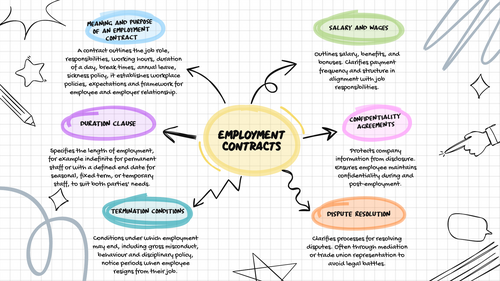 MEANING AND PURPOSE
OF AN EMPLOYMENT
CONTRACT
A contract outlines the job role,
responsibilities, working hours, duration
of a day, break times, annual leave,
sickness policy, it establishes workplace
policies, expectations and framework for
employee and employer relationship.
SALARY AND WAGES
Outlines salary, benefits, and
bonuses. Clarifies payment
frequency and structure in
alignment with job
responsibilities.
DURATION CLAUSE
Specifies the length of employment,
for example indefinite for permanent
staff or with a defined end date for
seasonal, fixed term, or temporary
staff, to suit both parties' needs.
EMPLOYMENT
CONTRACTS
CONFIDENTIALITY
AGREEMENTS
Protects company
information from disclosure.
Ensures employee maintains
confidentiality during and
post-employment.
TERMINATION CONDITIONS
Conditions under which employment
may end, including gross misconduct,
behaviour and disciplinary policy,
notice periods when employee
resigns from their job.
DISPUTE RESOLUTION
Clarifies processes for resolving
disputes. Often through mediation
or trade union representation to
avoid legal battles.